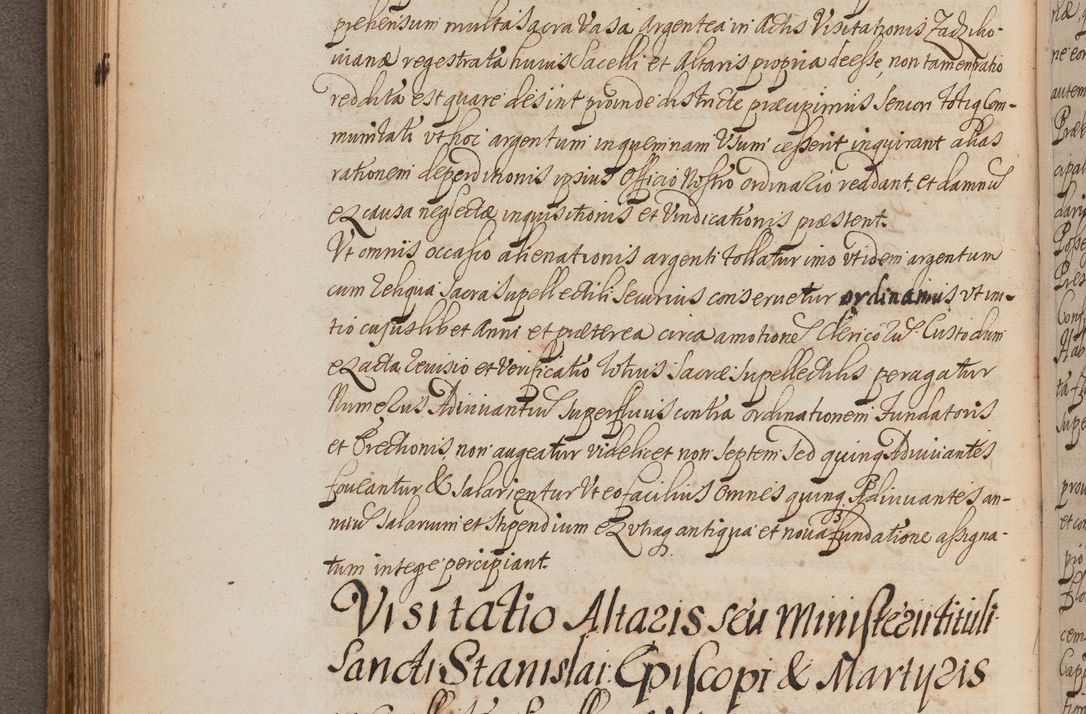 prehensum multa sacra vasa argentea in Actis Visitationis Zadziko-
vianæ regestrata huius Sacelli et Altaris propria deesse, non tamen ratio
reddita est quare desint proinde districte præcipimus Seniori totiq Com-
munitati vt hoc argentum in quemnam Vsum cesserit inquirant alias
rationem deperditionis ipsius Officio Nostro ordinario reddant, et damnu
ex causa neglectæ inquisitionis et Vindicationis præstent.
Vt omnis occasio alienationis argenti tollatur imo vt idem argentum
cum reliqua Sacra Supellectili securius conseruetur ordinamus vt ini-
tio cujuslibet Anni et præterea circa amotione Clericoru Custodum
exacta revisio et verificatio totius Sacræ Supellectilis peragatur
Numerus Adiuvantiu superfluus contra ordinationem Fundatoris
et Erectionis non augeatur videlicet non septem sed quinq Adiuvantes
foveantur & salarientur Vt eo facilius omnes quinq Adiuvantes an-
nuu Salarium et stipendium ex vtraq antiqua et noua fundatione assigna-
tum integre percipiant.
Visitatio Altaris seu Ministerii tituli
Sancti Stanislai Episcopi & Martyris